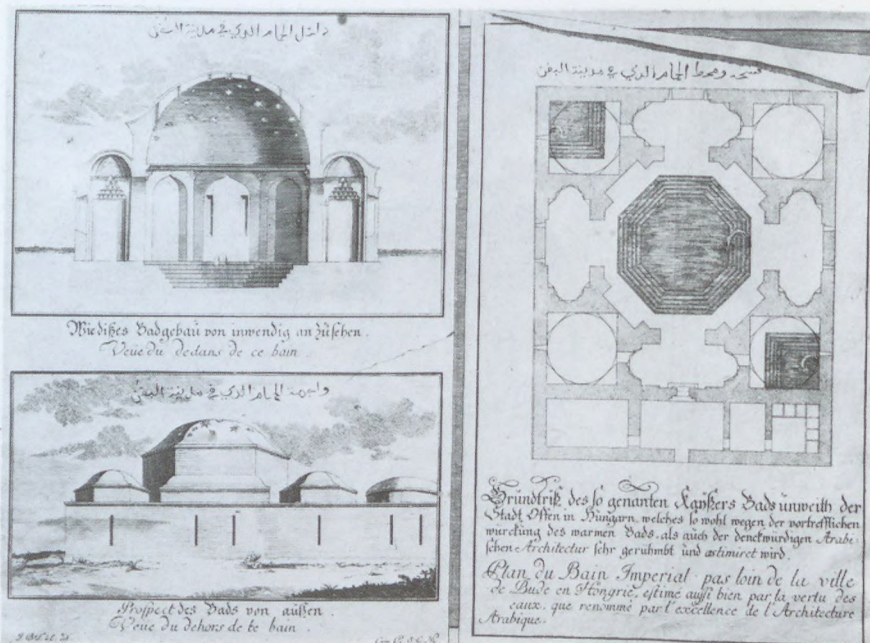 داخل الحمام الذي في مدينة
Wie dißes Badgebäu von inwendig an zusehen.
Veüe du dedans de ce bain.
الحمام الذي في مدينة
Prospect des Bads von außen.
Veüe du dehors de te bain.
الحمام الذي في مدينة
Grundriß des so genanten Kaÿßers Bads unweith der
Stadt Offen in Hungarn, welches so wohl wegen der vortrefflichen
würckung des warmen Bads, als auch der denckwürdigen Arabi-
schen Architectur sehr gerühmbt und æstimiret wird.
Plan du Bain Imperial pas loin de la ville
de Bude en Hongrie, estimé aussi bien par la vertu des
eaux, que renommé par l'excellence de l'Architecture
Arabique.